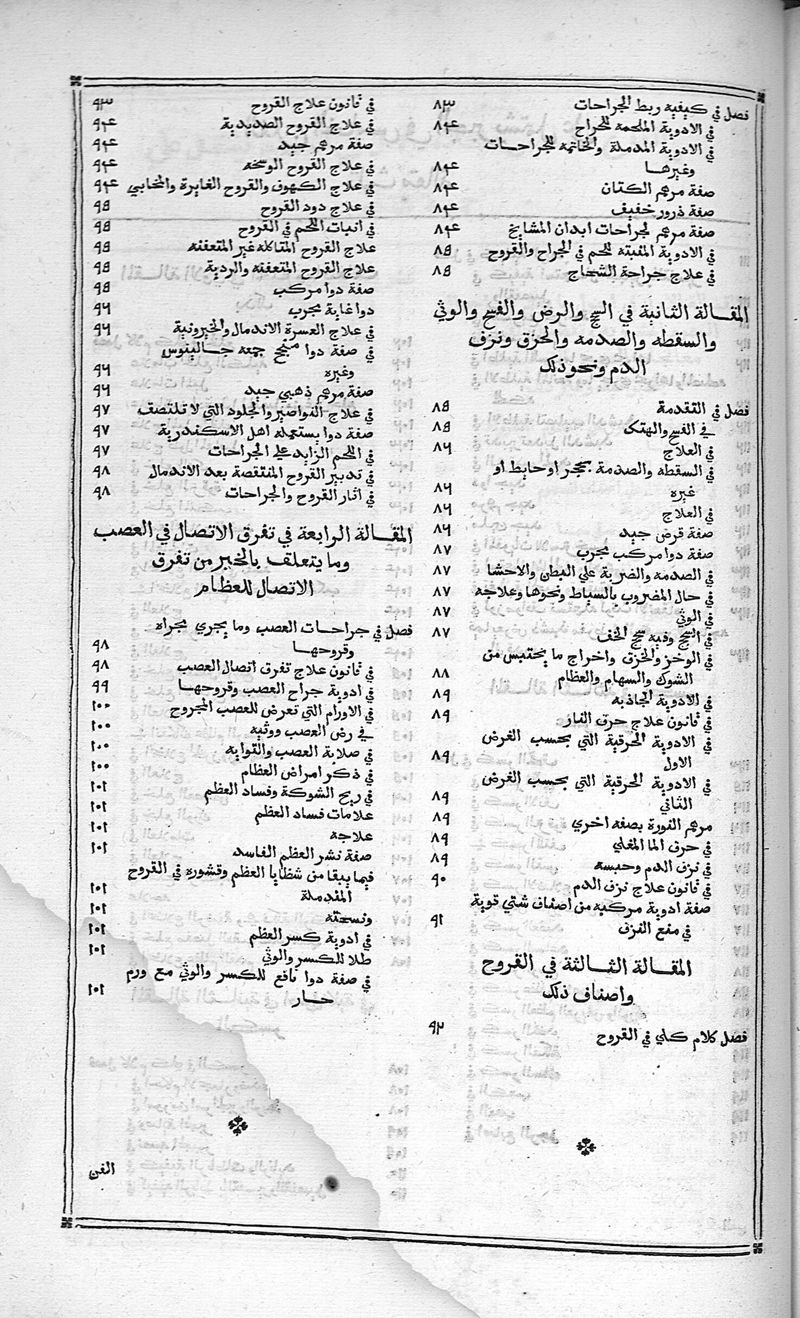 فصل في كيفيه ربط الجراحات ٨٣
في الادوية الملحمه للجراح ٨٤
في الادوية المدملة والخاتمه للجراحات
وغيرها ٨٤
صفة مرهم الكتان ٨٤
صفة ذرور خفيف ٨٤
صفة مرهم لجراحات ابدان المشايخ ٨٤
في الادوية المنبته للحم في الجراح والقروح ٨٥
في علاج جراحة الشجاج ٨٥
المقالة الثانية في السحج والرض والفسخ والوثي
والسقطه والصدمه والخزق ونزف
الدم ونحو ذلك
فصل في التقدمة ٨٥
في الفسخ والهتك ٨٥
في العلاج ٨٦
في السقطه والصدمة بحجر او حايط او
غيره ٨٦
في العلاج ٨٦
صفة قرص جيد ٨٦
صفة دوا مركب مجرب ٨٧
في الصدمه والضربة علي البطن والاحشا ٨٧
في حال المضروب بالسياط ونحوها وعلاجه ٨٧
في الوثي ٨٧
في السحج وفيه سحج الخف ٨٧
في الوخز والخزق واخراج ما يحتبس من
الشوك والسهام والعظام ٨٨
في الادوية الجاذبه ٨٩
في قانون علاج حرق النار ٨٩
في الادوية الحرقية التي بحسب الغرض
الاول ٨٩
في الادوية الحرقية التي بحسب الغرض
الثاني ٨٩
مرهم النورة بصفه اخري ٨٩
في حرق الما المغلي ٨٩
في نزف الدم وحبسه ٨٩
في قانون علاج نزف الدم ٩٠
صفة ادوية مركبه من اصناف شتي قوية
في منع النزف ٩١
المقالة الثالثة في القروح
واصناف ذلك
فصل كلام كلي في القروح ٩٢
في قانون علاج القروح ٩٣
في علاج القروح الصديدية ٩٤
صفة مرهم جيد ٩٤
في علاج القروح الوسخه ٩٤
في علاج الكهوف والقروح الغايرة والمخابي ٩٤
في علاج دود القروح ٩٥
في انبات اللحم في القروح ٩٥
علاج القروح المتاكله غير المتعفنه ٩٥
علاج القروح المتعفنه والردية ٩٥
صفة دوا مركب ٩٦
دوا غاية مجرب ٩٦
في علاج العسرة الاندمال والخيرونية ٩٦
في صفة دوا جمعه جالينوس
وغيره ٩٦
صفة مرهم ذهبي جيد ٩٦
في علاج النواصير والجلود التي لا تلتصق ٩٧
صفة دوا يستعمله اهل الاسكندرية ٩٧
في اللحم الزايد علي الجراحات ٩٧
في تدبير القروح المنتقصة بعد الاندمال ٩٨
في اثار القروح والجراحات ٩٨
المقالة الرابعة في تفرق الاتصال في العصب
وما يتعلف بالخبر من تفرق
الاتصال للعظام
فصل في جراحات العصب وما يجري مجراه
وقروحها ٩٨
في قانون علاج تفرق اتصال العصب ٩٨
في ادوية جراح العصب وقروحها ٩٩
في الاورام التي تعرض للعصب المجروح ١٠٠
في رض العصب ووثيه ١٠٠
في صلابة العصب والتوايه ١٠٠
في ذكر امراض العظام ١٠٠
في ريح الشوكة وفساد العظم ١٠١
علامات فساد العظم ١٠١
علاجه ١٠١
صفة نشر العظم الفاسد ١٠١
فيما يبقا من شظايا العظم وقشوره في القروح
المندملة ١٠١
ونسخته ١٠١
في ادوية كسر العظم ١٠١
طلا للكسر والوثي ١٠١
في صفة دوا نافع للكسر والوثي مع ورم
حار ١٠١
الفن